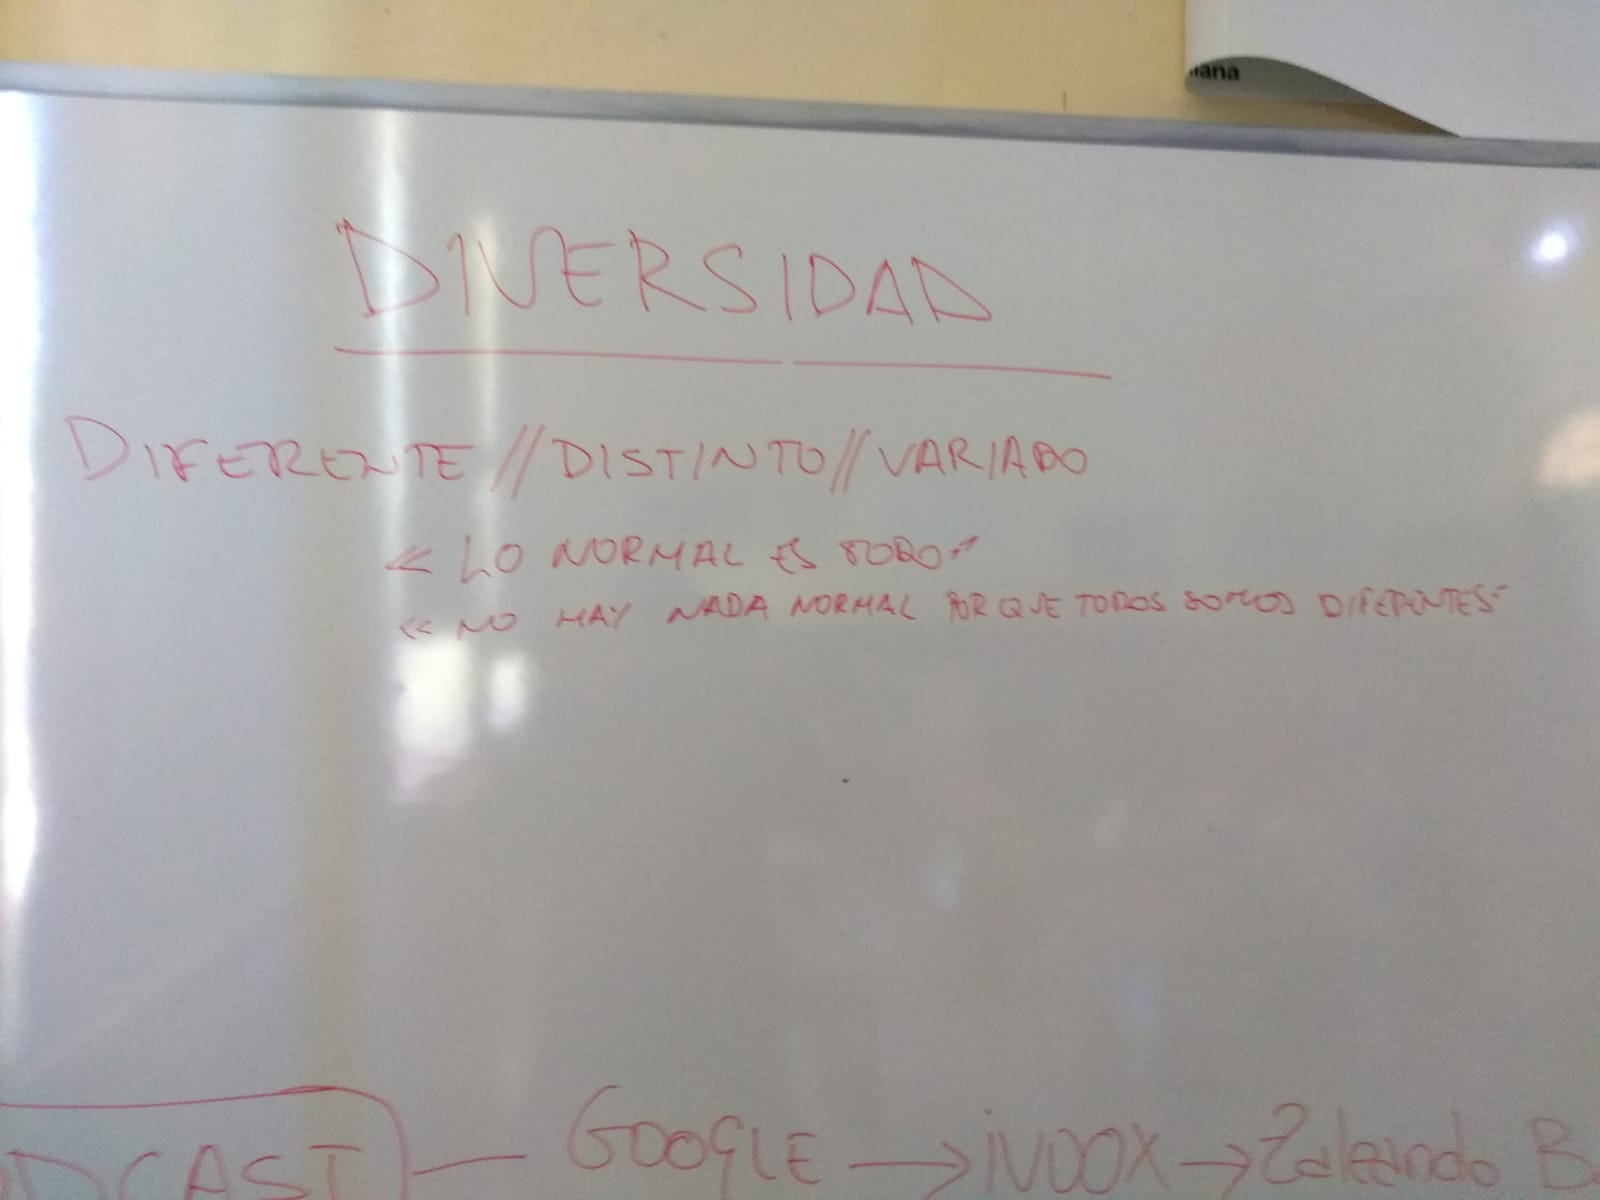 ana
DIVERSIDAD
DIFERENTE // DISTINTO // VARIADO
<< LO NORMAL ES TODO"
<< NO HAY NADA NORMAL PORQUE TODOS SOMOS DIFERENTES"
DCAST — GOOGLE → iVOOX → Zaleando B